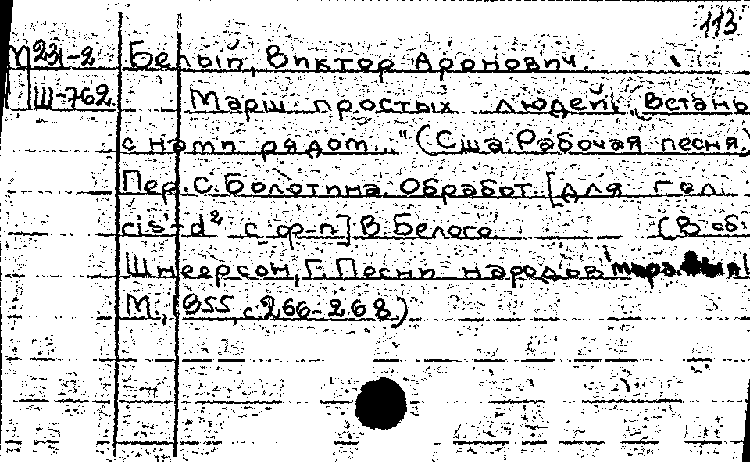 113
М 231-2 Белый, Виктор Аронович.
Ш-762 Марш простых людей „Встань
с нами рядом..." (Сша. Рабочая песня)
Пер. С. Болотина. Обработ. [для гол.
cis¹-d² с ф-п] В. Белого (В сб:
Шнеерсон, Г. Песни народов мира.
М., 1955, с. 266-268)